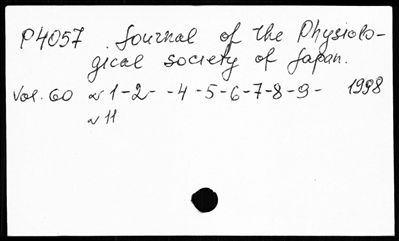 P4057. Journal of the Physiolo-
gical society of Japan.
Vol. 60 N 1-2- -4-5-6-7-8-9- 1998
N 11